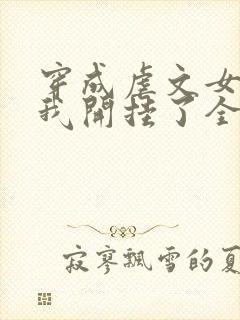 穿成虐文女
我开挂了全
寂寥飘雪的夏